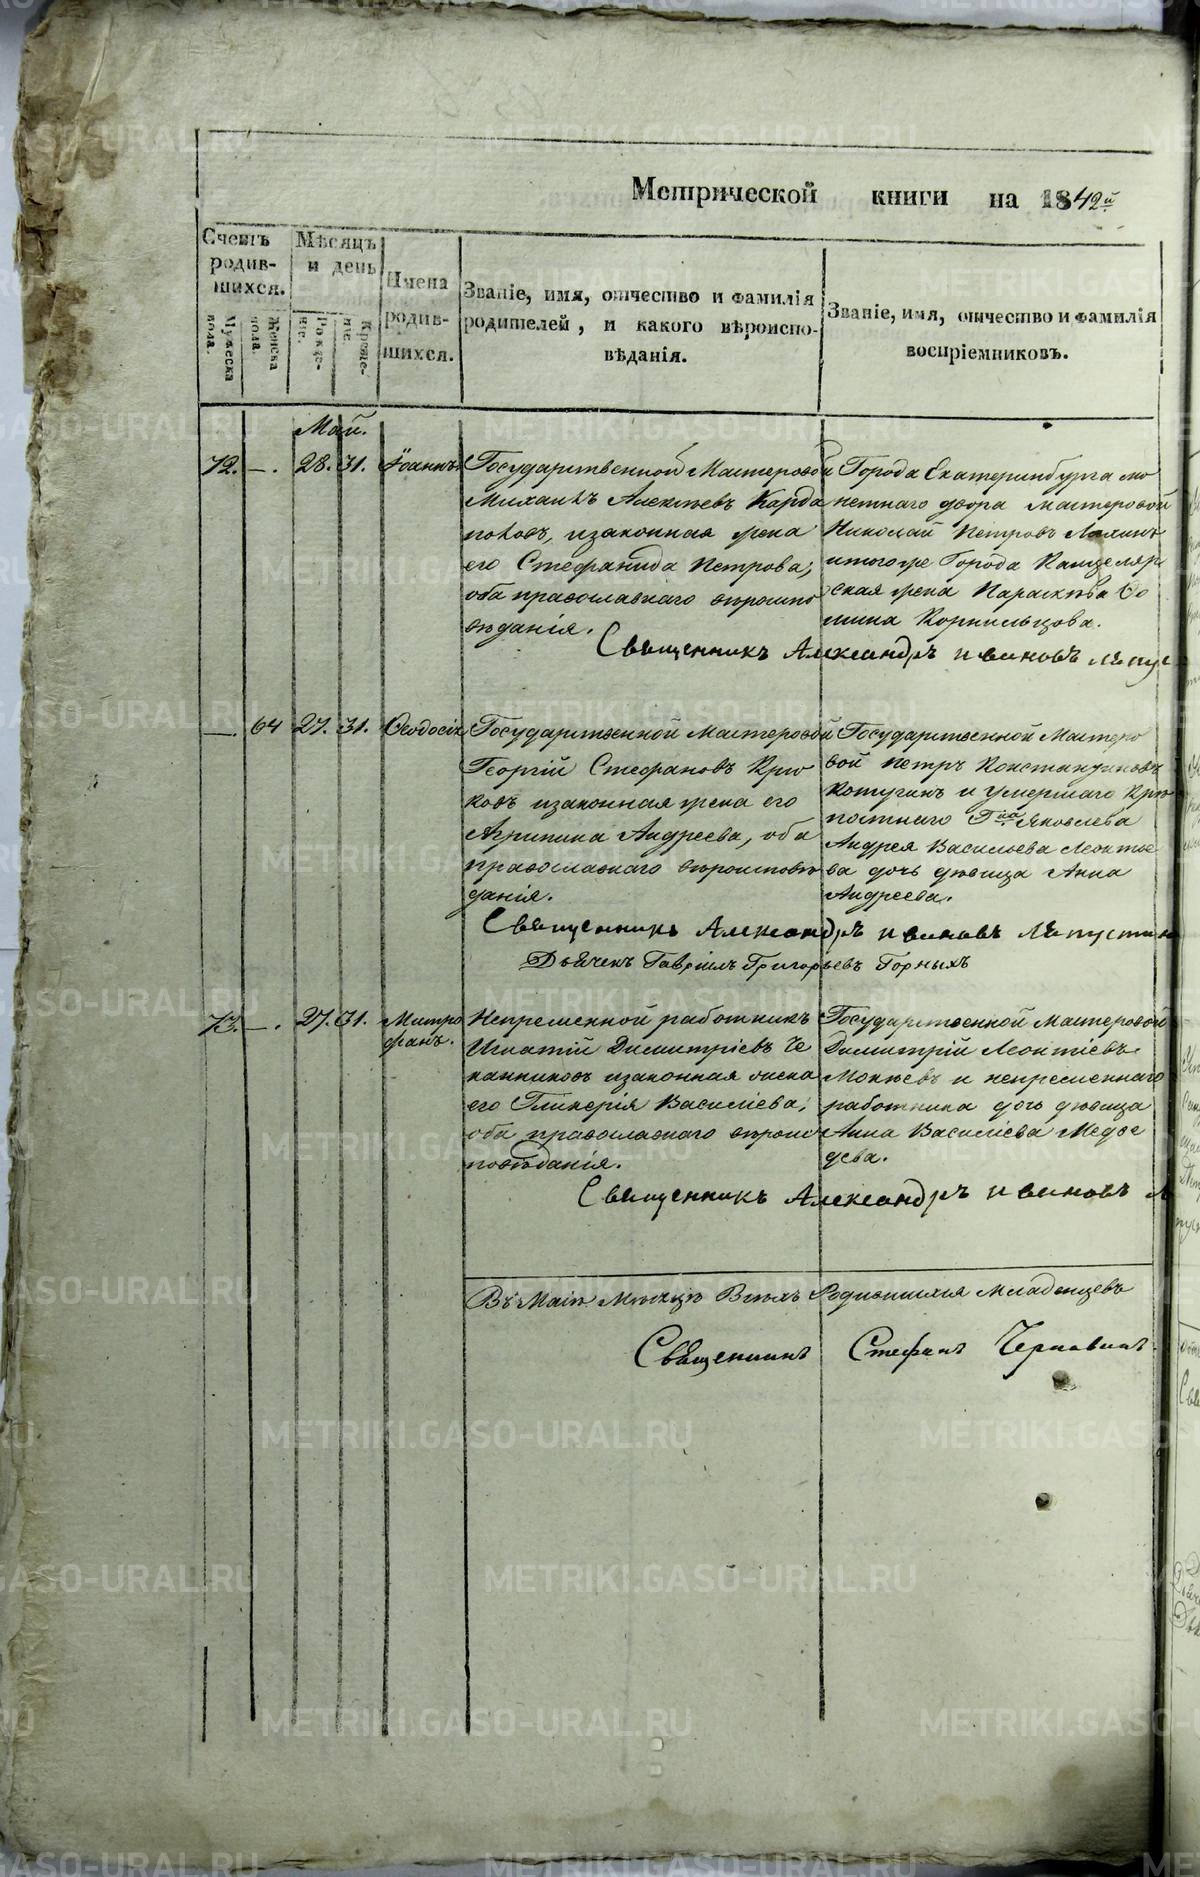 Метрической книги на 1842й
Счетъ родив-шихся.
Мужеска пола.
Женска пола.
Мѣсяцъ и день
Рожде-нїе.
Креще-нїе.
Имена родив-шихся.
Званїе, имя, отчество и фамилїя
родителей, и какого вѣроиспо-
вѣданїя.
Званїе, имя, отчество и фамилїя
воспрїемниковъ.
Май.
72. —. 28. 31. Іоаннъ.
Государственной Мастеровой
Михаилъ Алексѣевъ Карда
половъ, изаконная жена
его Стефанида Петрова;
оба православнаго вѣроиспо
вѣданія.
Города Екатеринбурга мо
нетнаго двора мастеровой
Николай Петровъ
итогоже Города Канцеляр
ская жена Параскѣва Ѳо
мина Корнильцова.
Священникъ Александръ Ивановъ
—. 64 27. 31. Ѳеодосія
Государственной Мастеровой
Георгій Стефановъ Крю
ковъ изаконная жена его
Агрипина Андреева, оба
православнаго вѣроисповѣ
данія.
Государственной Мастеро
вой Петръ Константиновъ
Котугинъ и умершаго Крѣ
постнаго Гна Яковлева
Андрея Васильева Леонтье
ва дочь дѣвица Анна
Андреева.
Священникъ Александръ Ивановъ Лѣпустинъ
Дьячекъ Гавріилъ Григорьевъ Горныхъ
73. —. 27. 31. Митро
фанъ.
Непременной работникъ
Игнатій Димитріевъ Че
канниковъ изаконная жена
его Гликерія Василіева,
оба православнаго вѣроис
повѣданія.
Государственной Мастеровой
Димитрій Леонтіевъ
Мокѣевъ и непременнаго
работника дочь дѣвица
Анна Василіева Медве
дева.
Священникъ Александръ Ивановъ
Въ Маіѣ Мѣсяцѣ Всѣхъ Родившихся Младенцевъ
Священникъ Стефанъ Чернавинъ
METRIKI.GASO-URAL.RU